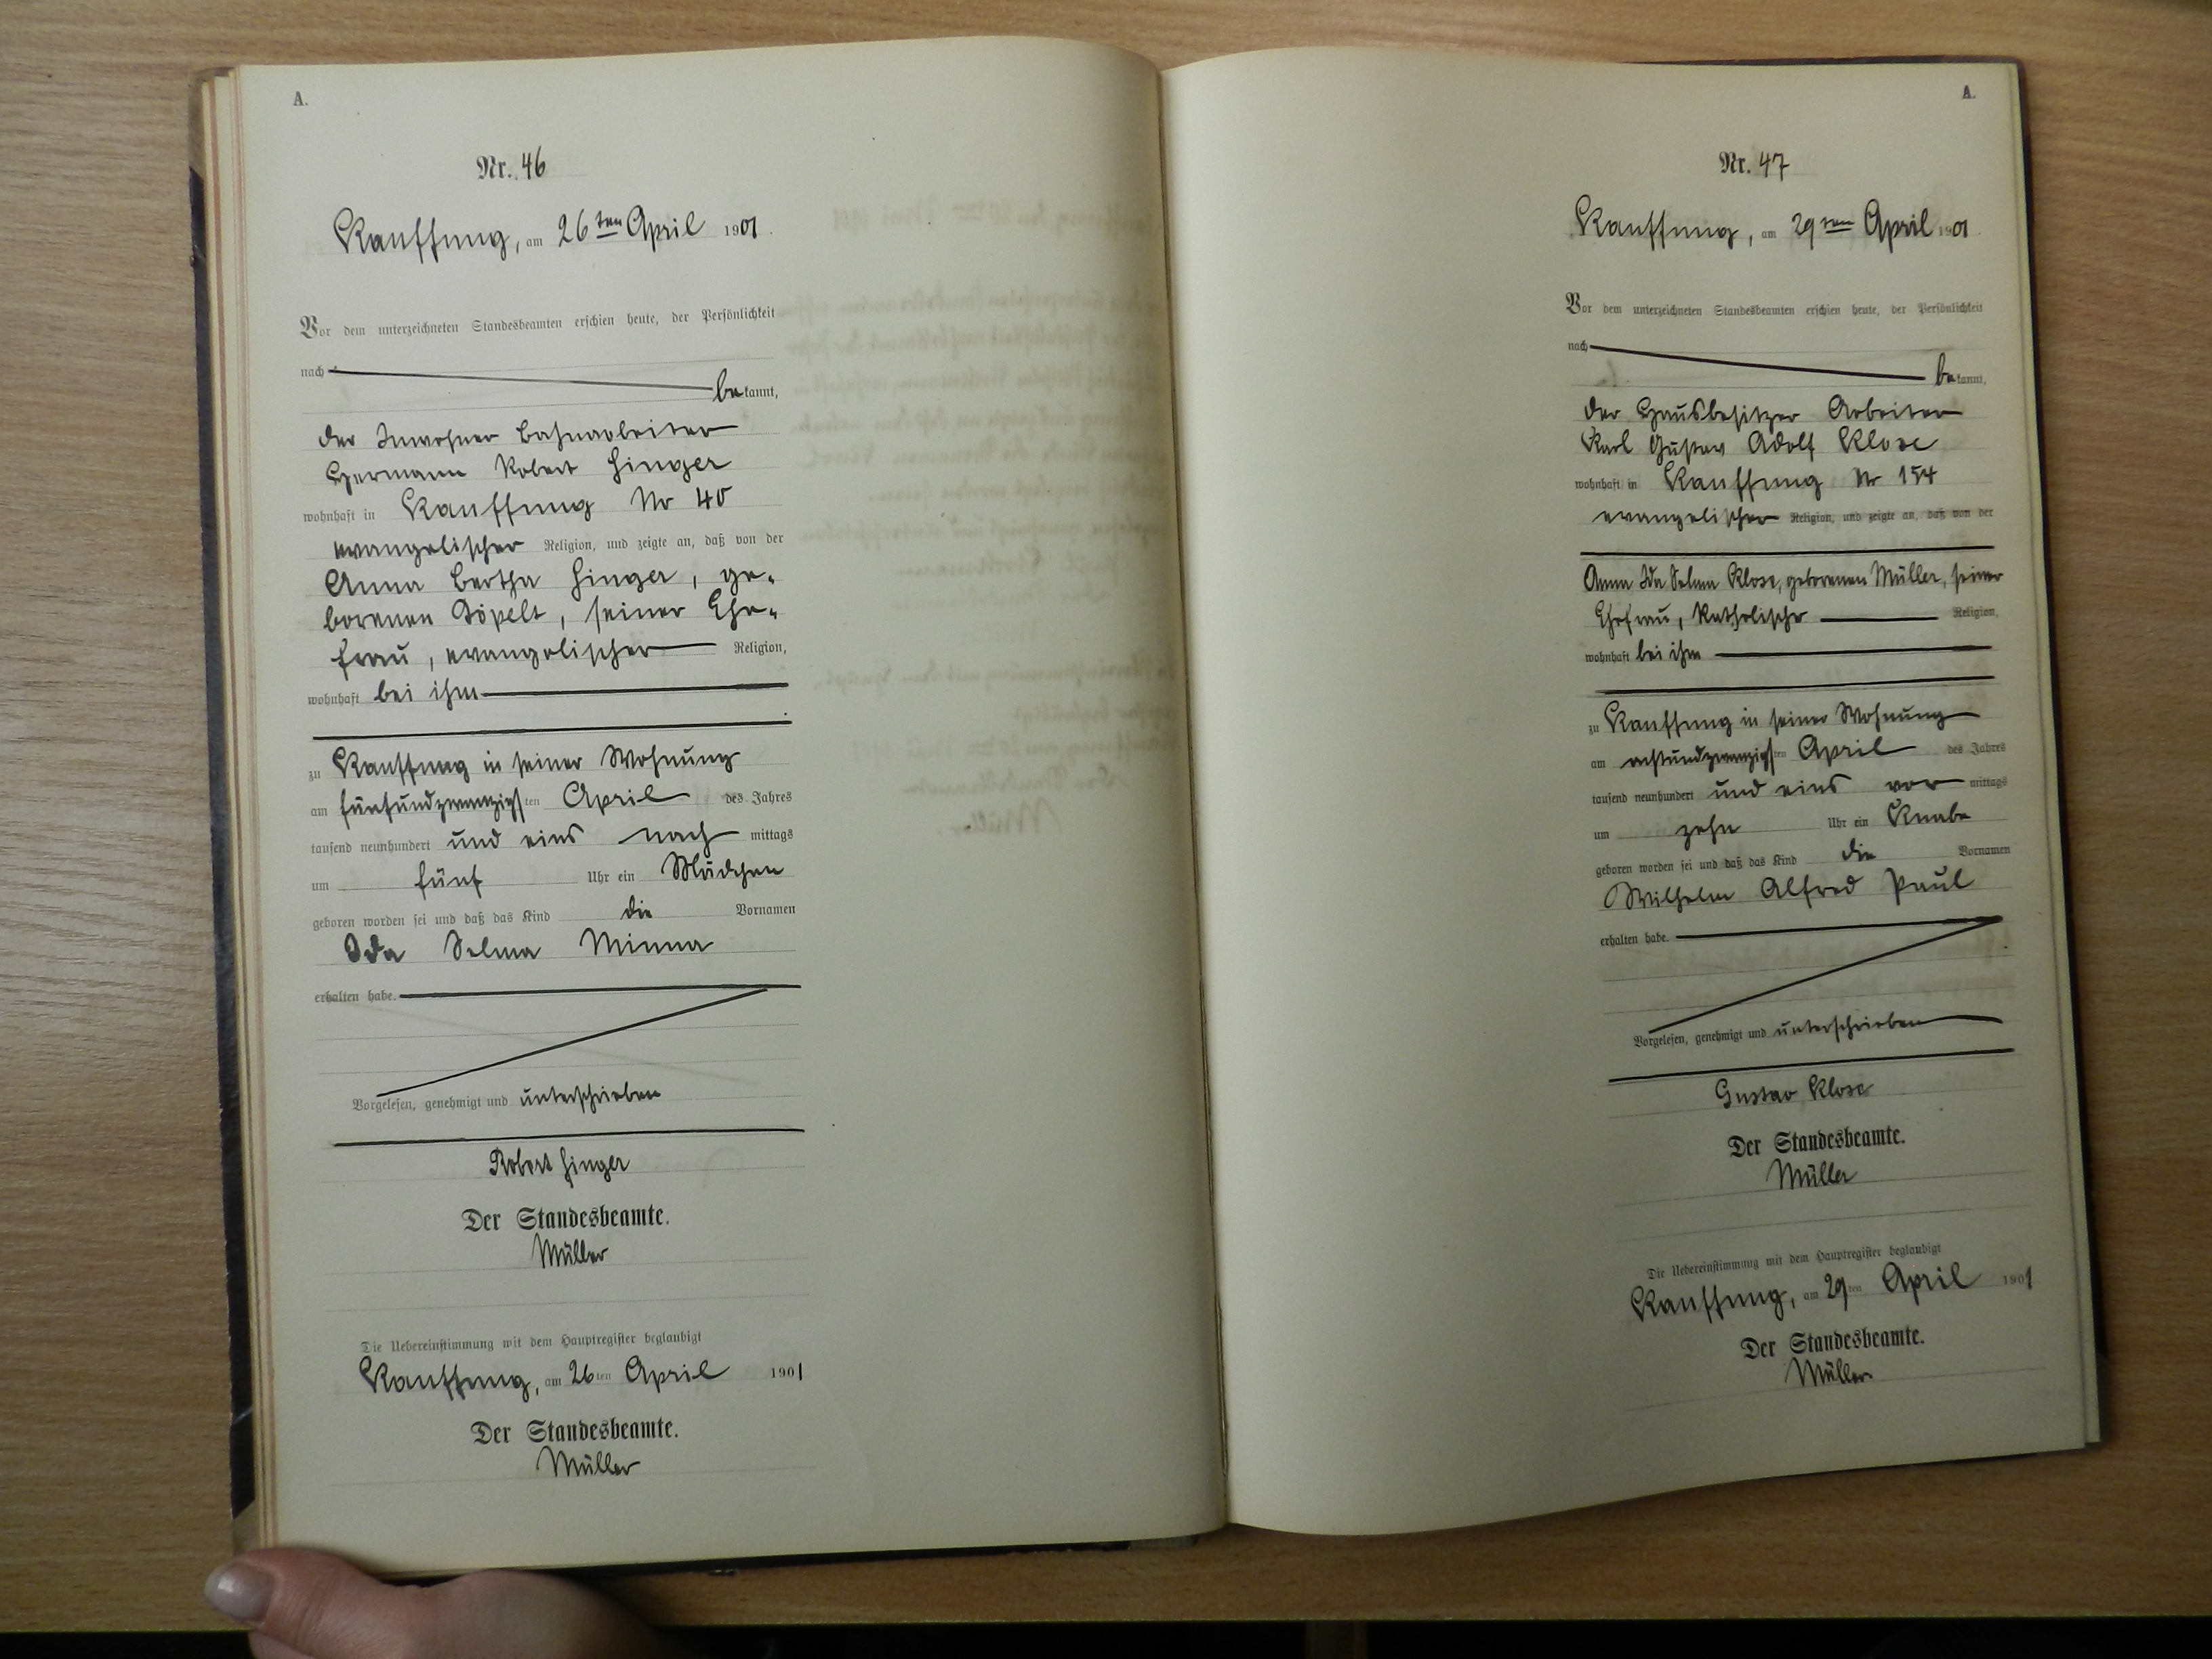 A.
Nr. 46
Kauffung, am 26ten April 1901.
Vor dem unterzeichneten Standesbeamten erschien heute, der Persönlichkeit
nach
bekannt,
der Inwohner Bahnarbeiter
Hermann Robert Hinger
wohnhaft in Kauffung Nr 40
evangelischer Religion, und zeigte an, daß von der
Anna Bertha Hinger, ge-
borenen Töpelt, seiner Ehe-
frau, evangelischer Religion,
wohnhaft bei ihm
zu Kauffung in seiner Wohnung
am fünfundzwanzigsten April des Jahres
tausend neunhundert und eins nach mittags
um fünf Uhr ein Mädchen
geboren worden sei und daß das Kind die Vornamen
Ida Selma Minna
erhalten habe.
Vorgelesen, genehmigt und unterschrieben
Robert Hinger
Der Standesbeamte.
Müller
Die Uebereinstimmung mit dem Hauptregister beglaubigt
Kauffung, am 26ten April 1901
Der Standesbeamte.
Müller
A.
Nr. 47
Kauffung, am 29ten April 1901.
Vor dem unterzeichneten Standesbeamten erschien heute, der Persönlichkeit
nach
bekannt,
der Hausbesitzer Arbeiter
Karl Gustav Adolf Klose
wohnhaft in Kauffung Nr 154
evangelischer Religion, und zeigte an, daß von der
Anna Ida Selma Klose, geborenen Müller, seiner
Ehefrau, katholischer Religion,
wohnhaft bei ihm
zu Kauffung in seiner Wohnung
am achtundzwanzigsten April des Jahres
tausend neunhundert und eins vor mittags
um zehn Uhr ein Knabe
geboren worden sei und daß das Kind die Vornamen
Wilhelm Alfred Paul
erhalten habe.
Vorgelesen, genehmigt und unterschrieben
Gustav Klose
Der Standesbeamte.
Müller
Die Uebereinstimmung mit dem Hauptregister beglaubigt
Kauffung, am 29ten April 1901
Der Standesbeamte.
Müller